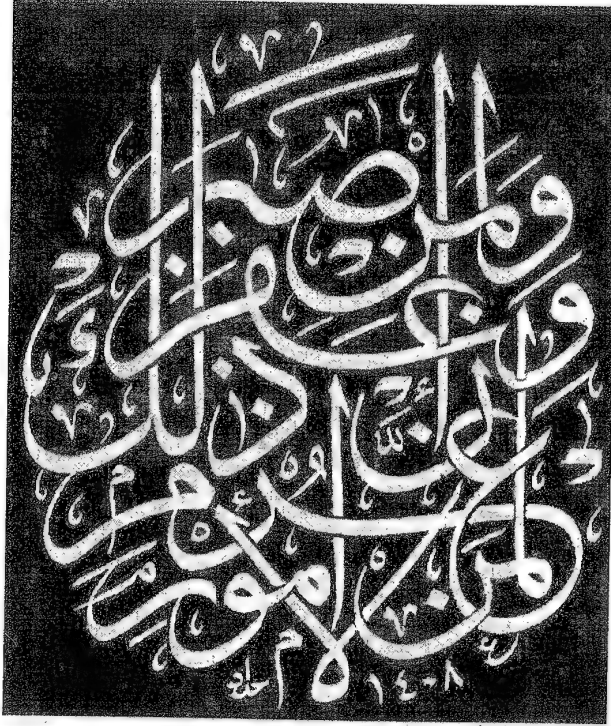 وَلَمَنْ صَبَرَ
وَغَفَرَ إِنَّ ذَٰلِكَ
لَمِنْ عَزْمِ
الْأُمُورِ
١٤٠٨